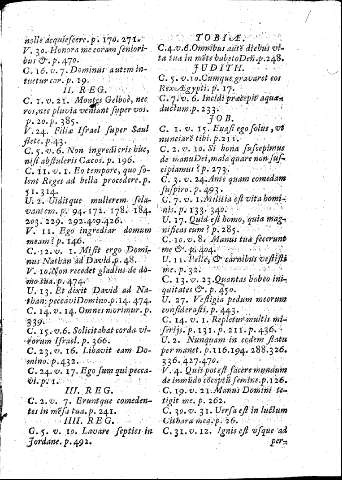 nolle acquiescere. p. 170. 271.
V. 30. Honora me coram seniori-
bus &. p. 470.
C. 16. v. 7. Dominus autem in-
tuetur cor. p. 19.
II. REG.
C. 1. v. 21. Montes Gelboè, nec
ros, nec pluvia veniant super vos.
p. 20. p. 385.
V. 24. Filiæ Israel super Saul
flete. p. 43.
C. 5. v. 6. Non ingredieris huc,
nisi abstuleris Cæcos. p. 196.
C. 11. v. 1. Eo tempore, quo so-
lent Reges ad bella procedere. p.
51. 314.
U. 2. Viditque mulierem sela-
vantem. p. 94. 172. 178. 184.
203. 229. 292. 409. 426.
V. 11. Ego ingrediar domum
meam? p. 146.
C. 12. v. 1. Misit ergo Domi-
nus Nathan ad David. p. 48.
V. 10. Non recedet gladius de do-
mo tua. p. 474.
U. 13. Et dixit David ad Na-
than: peccavi Domino. p. 14. 474.
C. 14. v. 14. Omnes morimur. p.
339.
C. 15. v. 6. Solicitabat corda vi-
rorum Israel. p. 366.
C. 23. v. 16. Libavit eam Do-
mino. p. 432.
C. 24. v. 17. Ego sum qui pecca-
vi. p. 1.
III. REG.
C. 2. v. 7. Eruntque comeden-
tes in mẽsa tua. p. 241.
IIII. REG.
C. 5. v. 10. Lavare septies in
Jordane. p. 492.
TOBIÆ.
C. 4. v. 6. Omnibus autẽ diebus vi-
ta tua in mẽte habeto Deũ. p. 248.
JUDITH.
C. 5. v. 10. Cumque gravaret eos
Rex Ægypti. p. 17.
C. 7. v. 6. Incidi præcepit aquæ-
ductum. p. 233.
JOB.
C. 1. v. 15. Evasi ego solus, vt
nunciarẽ tibi. p. 211.
C. 2. v. 10. Si bona suscepimus
de manu Dei, mala quare non sus-
cipiamus? p. 273.
C. 3. v. 24. Ante quam comedam
suspiro. p. 493.
C. 7. v. 1. Militia est vita homi-
nis. p. 133. 340.
U. 17. Quid est homo, quia mag-
nificas eum? p. 285.
C. 10. v. 8. Manus tuæ fecerunt
me &. p. 404.
U. 11. Pelle, & carnibus vestisti
me. p. 32.
C. 13. v. 23. Quantas habeo ini-
quitates &. p. 450.
U. 27. Vestigia pedum meorum
considerasti. p. 443.
C. 14. v. 1. Repletur multis mi-
serijs. p. 131. p. 211. p. 436.
U. 2. Nunquam in eodem statu
permanet. p. 116. 194. 288. 326.
336. 427. 470.
V. 4. Quis potest facere mundum
de inmũdo cõceptũ semine. p. 126.
C. 19. v. 21. Manus Domini te-
tigit me. p. 262.
C. 30. v. 31. Versa est in luctum
Cithara mea. p. 26.
C. 31. v. 12. Ignis est vsque ad
per-